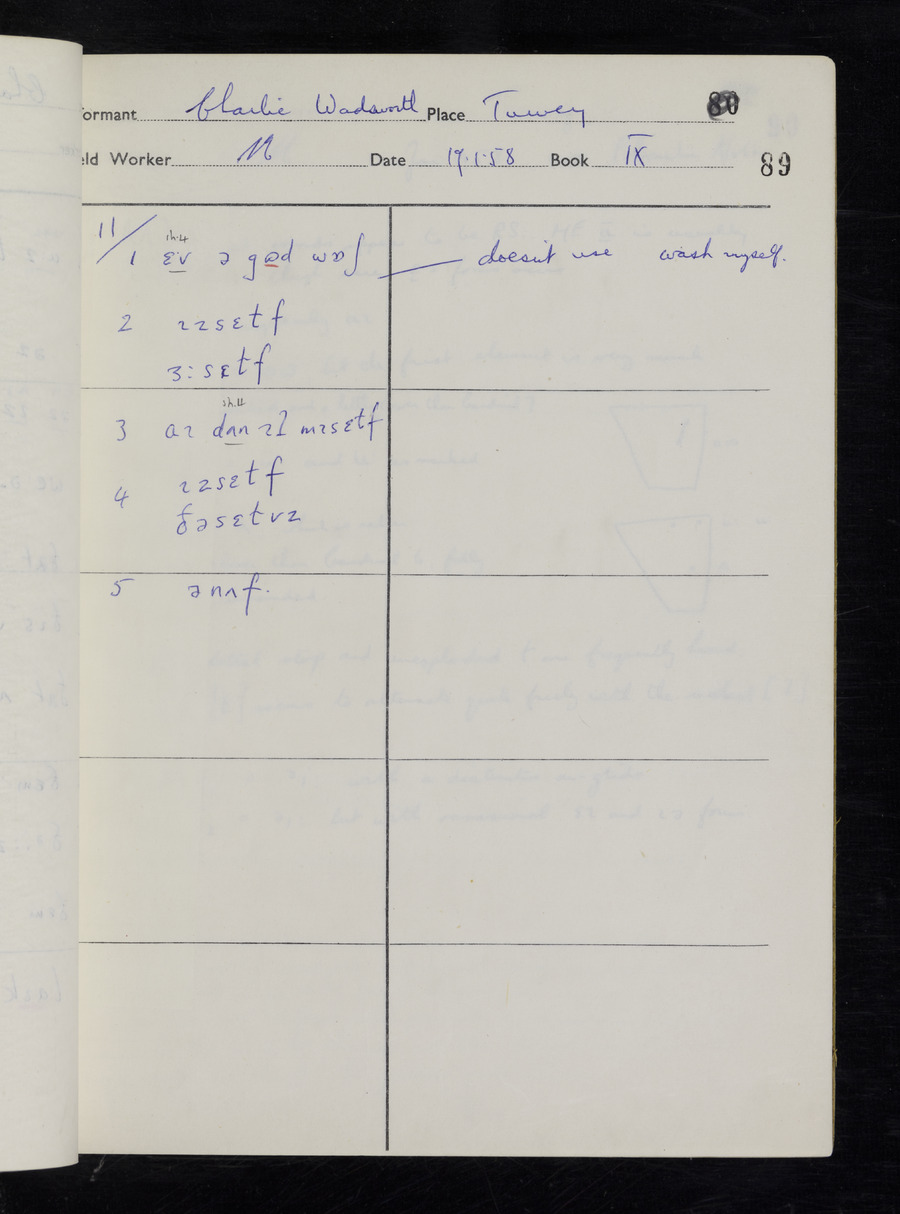 ormant Charlie Wadsworth Place Turvey 80
ld Worker M Date 17.1.58 Book IX 89
11/
1 ɛ·v ə gɷd wɒʃ doesn't use wash myself.
2 ɪzsɛtf
ɜ:sɛtf
3 aɪ dʌn ɪl mɪsɛtf
4 ɪzsɛtf
ðəsɛtvz
5 ənʌf.